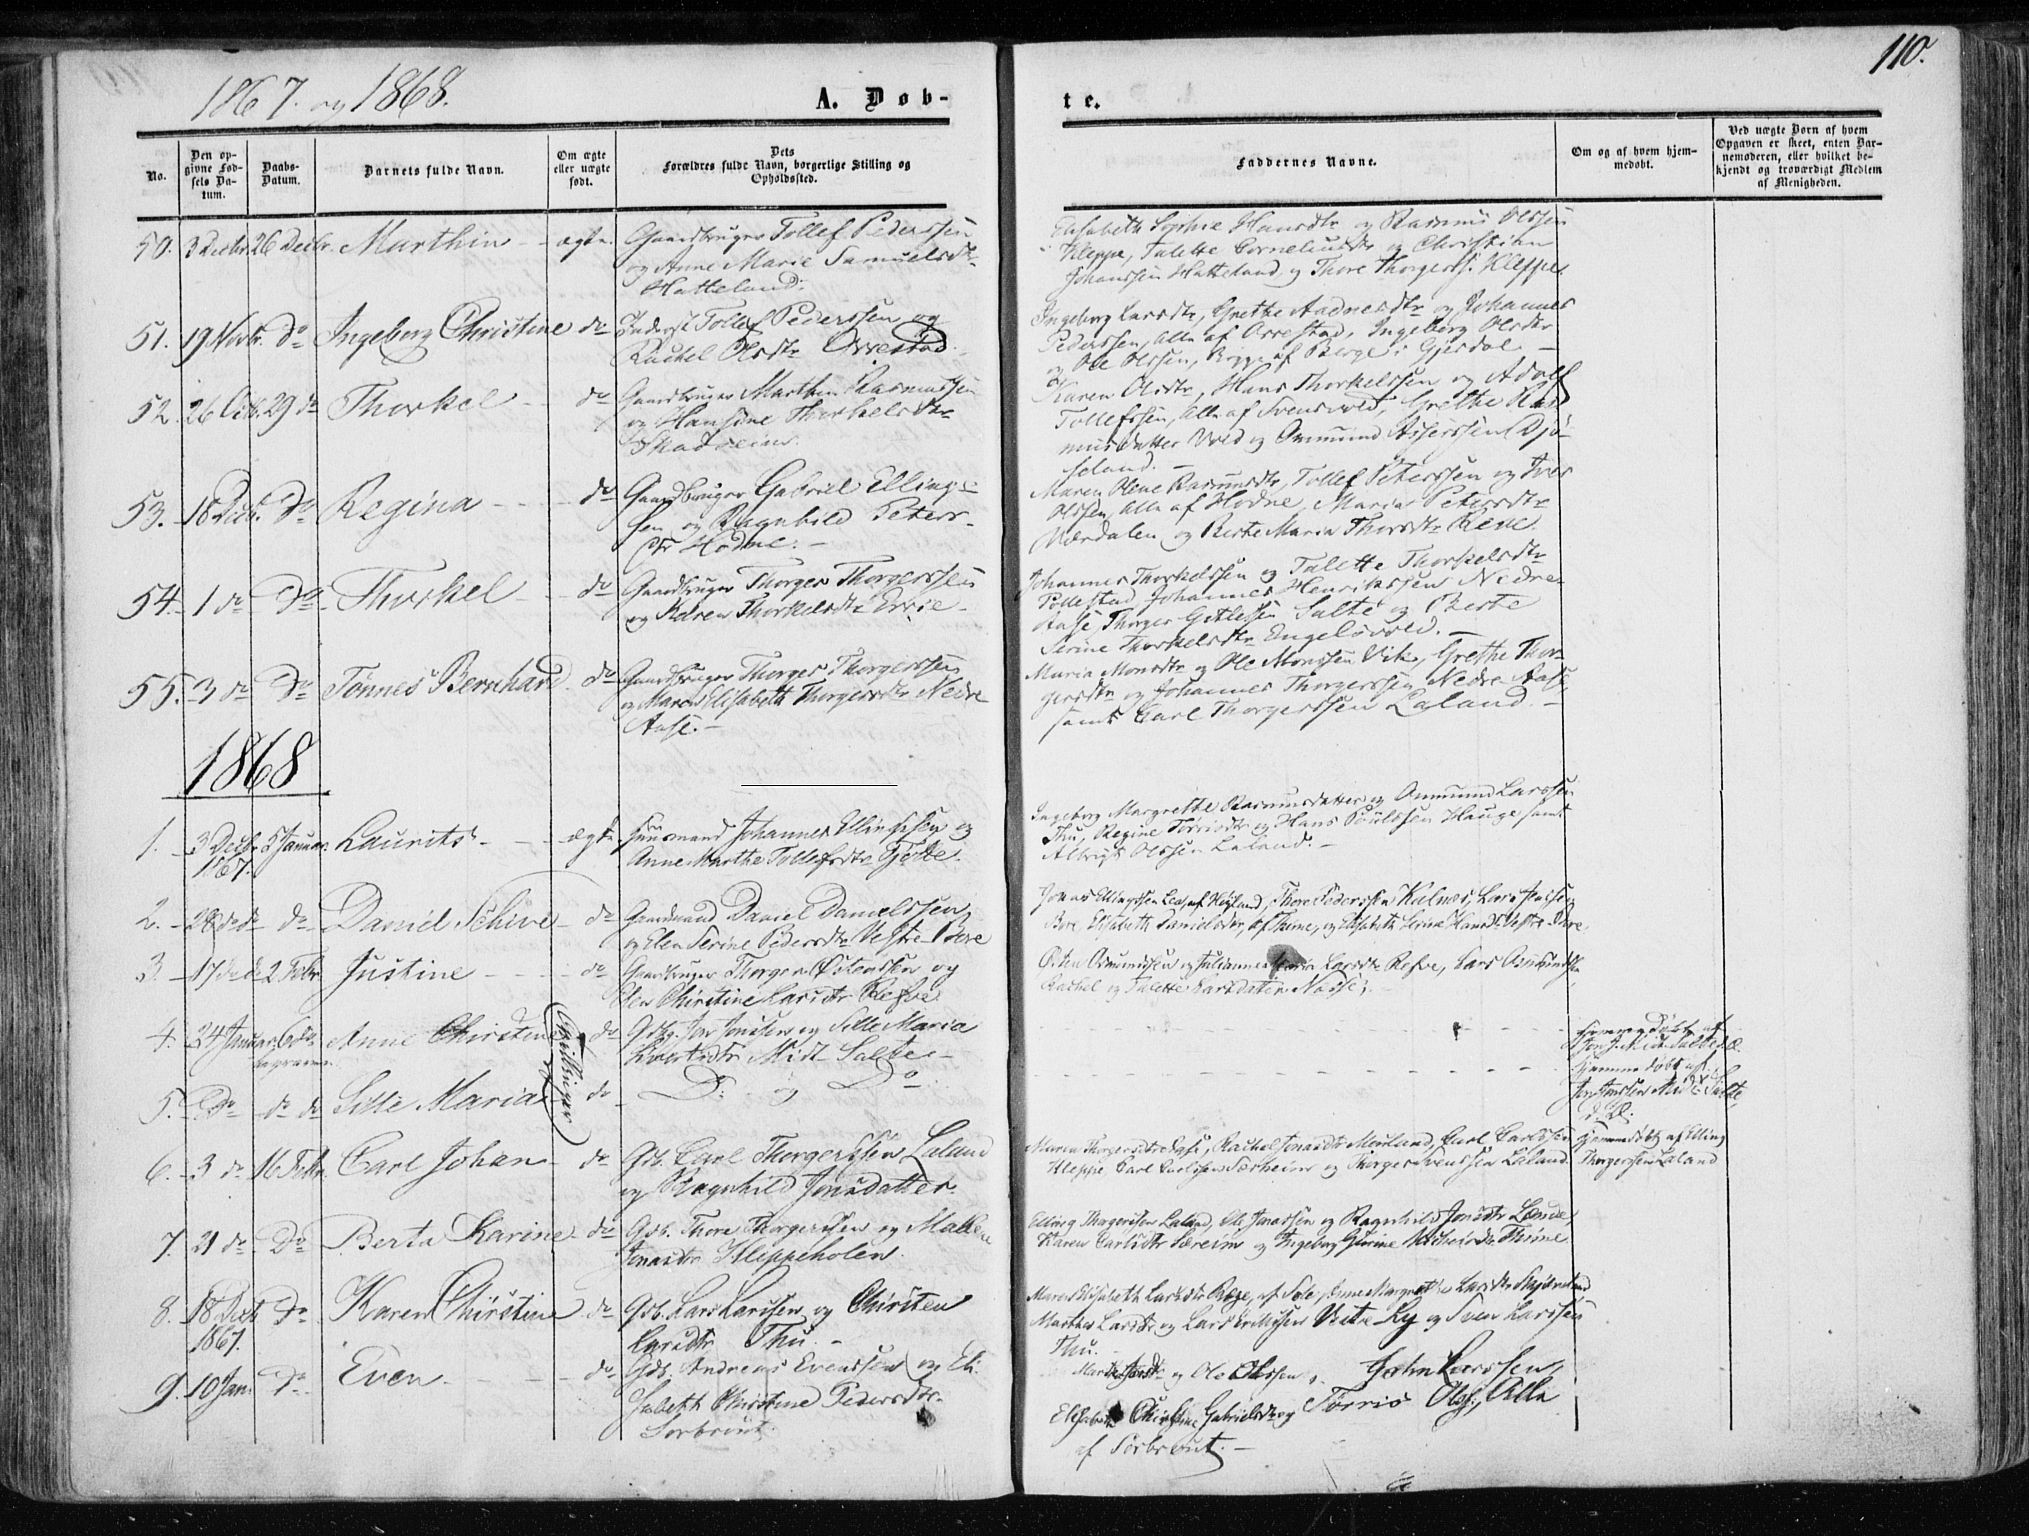 1867. og 1868.
A. Døb-
te.
110.
No.
Den op-
givne Fød-
sels Da-
tum.
Daabs-
Datum.
Barnets fulde Navn.
Om ægte
eller uægte
født.
Dets
Forældres fulde Navn, borgerlige Stilling og
Opholdssted.
Faddernes Navne.
Om og af hvem hjem-
medøbt.
Ved uægte Børn af hvem
Opgaven er skeet, enten Bar-
nemoderen, eller hvilket be-
kjendt og troværdigt Medlem
af Menigheden.
50. 3 Decbr. 26 Decbr. Marthin - - ægte. Gaardbruger Tollef Pederssen
og Anne Marie Samuelsdtr
Hatteland.
Elisabeth Sophie Hansdtr og Rasmus Olssen
Kleppe, Talette Corneliusdtr og Christian
Johanssen Hatteland og Thore Thorgerss. Kleppe.
51. 19 Novbr. do Ingeborg Christine do Inderst Tollef Pederssen og
Rachel Olsdtr Orrestad.
Ingeborg Larsdtr, Grethe Aadnesdtr og Johannes
Pederssen, alle af Orrestad, Ingeborg Olsdtr
og Ole Olssen, Begge af Berge i Gjesdal. -
52. 26 Octb. 29 do Thorkel - do Gaardbruger Marthin Rasmussen
og Hansine Thorkelsdtr
Skadseim.
Karen Olsdtr, Hans Thorkelssen og Adolf
Tollefssen, alle af Svensvold, Grethe Ras-
musdatter Vold og Osmund Asserssen Njø-
seland. -
53. 18 Decb. do Regina - - - do Gaardbruger Gabriel Elling-
sen og Ragnhild Peters-
dtr Hodne. -
Maren Olene Rasmusdtr, Tollef Peterssen og Iver
Olssen, alle af Hodne, Maria Petersdtr
Nærdalen og Berte Maria Thorsdtr Reve.
54. 1 do do Thorkel - - do Gaardbruger Thorger Thorgerssen
og Karen Thorkelsdtr Ervie -
Johannes Thorkelssen og Talette Thorkelsdtr
Pollestad Johannes Henrikssen Nedre
Aase, Thorger Gitlessen Salte og Berte
Serine Thorkelsdtr Engelsvold. -
55. 3 do do Tønnes Bernhard do Gaardbruger Thorger Thorgerssen
og Maren Elisabeth Thorgersdtr Nedre
Aase. -
Maria Monsdtr og Ole Monssen Vik, Grethe Thor-
gersdtr og Johannes Thorgerssen Nedre Aase,
samt Carl Thorgerssen Laland. -
1868
1. 3 Decbr. 5 Januar. Laurits - - - ægte Huusmand Johannes Ellingssen og
1867. Anne Marthe Tollefsdtr Tjøtte.
Ingeborg Margrethe Rasmusdatter og Osmund Larssen
Thu, Regine Tørrisdtr og Hans Poulssen Hauge samt
Albrigt Olssen Laland. -
2. 28 do do do Daniel Schive - do Gaardmand Daniel Danielssen
og Elen Serine Pedersdtr Vestre Bore
Jonas Ellingssen Lea af Høyland, Thore Pederssen Kalnes, Lars
Bore Elisabeth Danielsdtr, af Thime, og Elisabeth Serine Hansdtr Vestre Bore,
3. 17 do do 2 Febr. Justine - - - do Gaardbruger Thorger Østenssen og
Elen Christine Larsdtr Refve.
Østen Osmundssen og Julianne Maria Larsdtr Refve, Lars Osmundssen,
Rachel og Talette Larsdatter Nasse. -
4. 24 Januar 6 do Anne Christine do Gdbg. Jon Jonassen og Sille Maria
begraven. Sivertsdtr Midt Salte. -
Tvillinger
Hjemmedøbt af
Jon J. Midt Salte d. Æ.
5. do do do Sille Maria do - Do og Do
Hjemmedøbt af
Jon Jonssen Midt Salte,
d. Æ.
6. 3 do 16 Febr. Carl Johan - do Gdb. Carl Thorgerssen Laland
og Ragnhild Jonsdatter
Maren Thorgersdtr Aase, Rachel Jonasdtr Morland, Carl Carlssen
Kleppe Carl Carlssen Særheim og Thorger Svenssen Laland.
Hjemmedøbt af Elling
Thorgerssen Laland
7. 21 do do Berta Karine do Gdb. Thore Thorgerssen og Malene
Jonasdtr Kleppeholen.
Elling Thorgerssen Laland, Ole Jonassen og Ragnhild Jonsdtr Lende,
Karen Carlsdtr Særeim og Ingeborg Thime
8. 18 Decb. do Karen Christine do Gdb. Lars Larssen og Christen
1867. Larsdtr Thu. -
Maren Elisabeth Larsdtr Bøge, af Sole, Anne Margrethe Larsdtr
Marthe Larsdtr og Lars Erikssen Vestre Ly og Sven Larssen
Thu. -
9. 10 Jan. do Even - - - do Gdb. Andreas Evenssen og Eli-
sabeth Christine Pedersdtr
Sorbrout.
og Ole Olssen, John Larssen,
Elisabeth Christine Gabrielsdtr og Tørris Olss., Alle
af Sorbrout. -